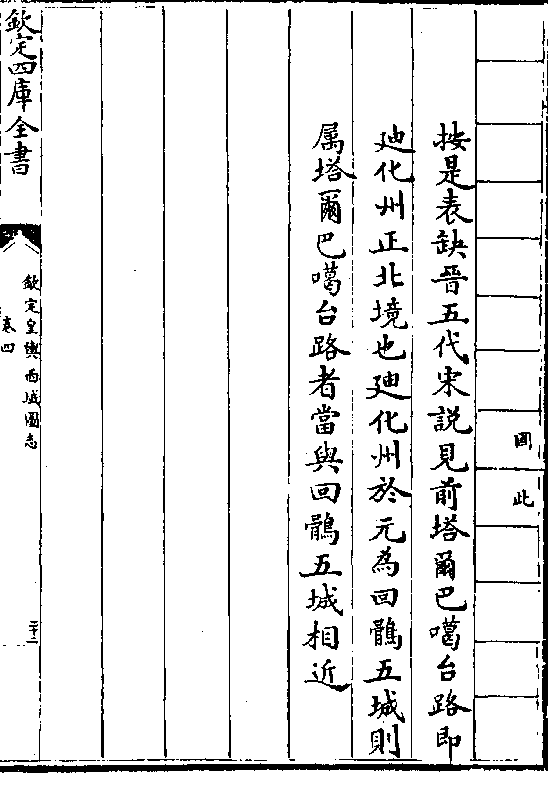 國此
按是表缺晉五代宋説見前塔爾巴噶台路即
廸化州正北境也廸化州於元為回鶻五城則
属塔爾巴噶台路者當與回鶻五城相近
欽定四庫全書
欽定皇輿西域圖志
卷四
二十二